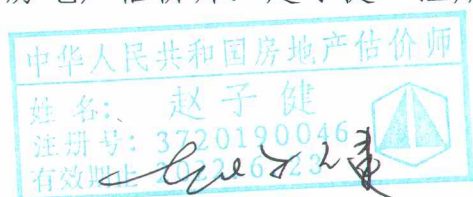 中华人民共和国房地产估价师
姓名: 赵子健
注册号: 3720190046
有效期止